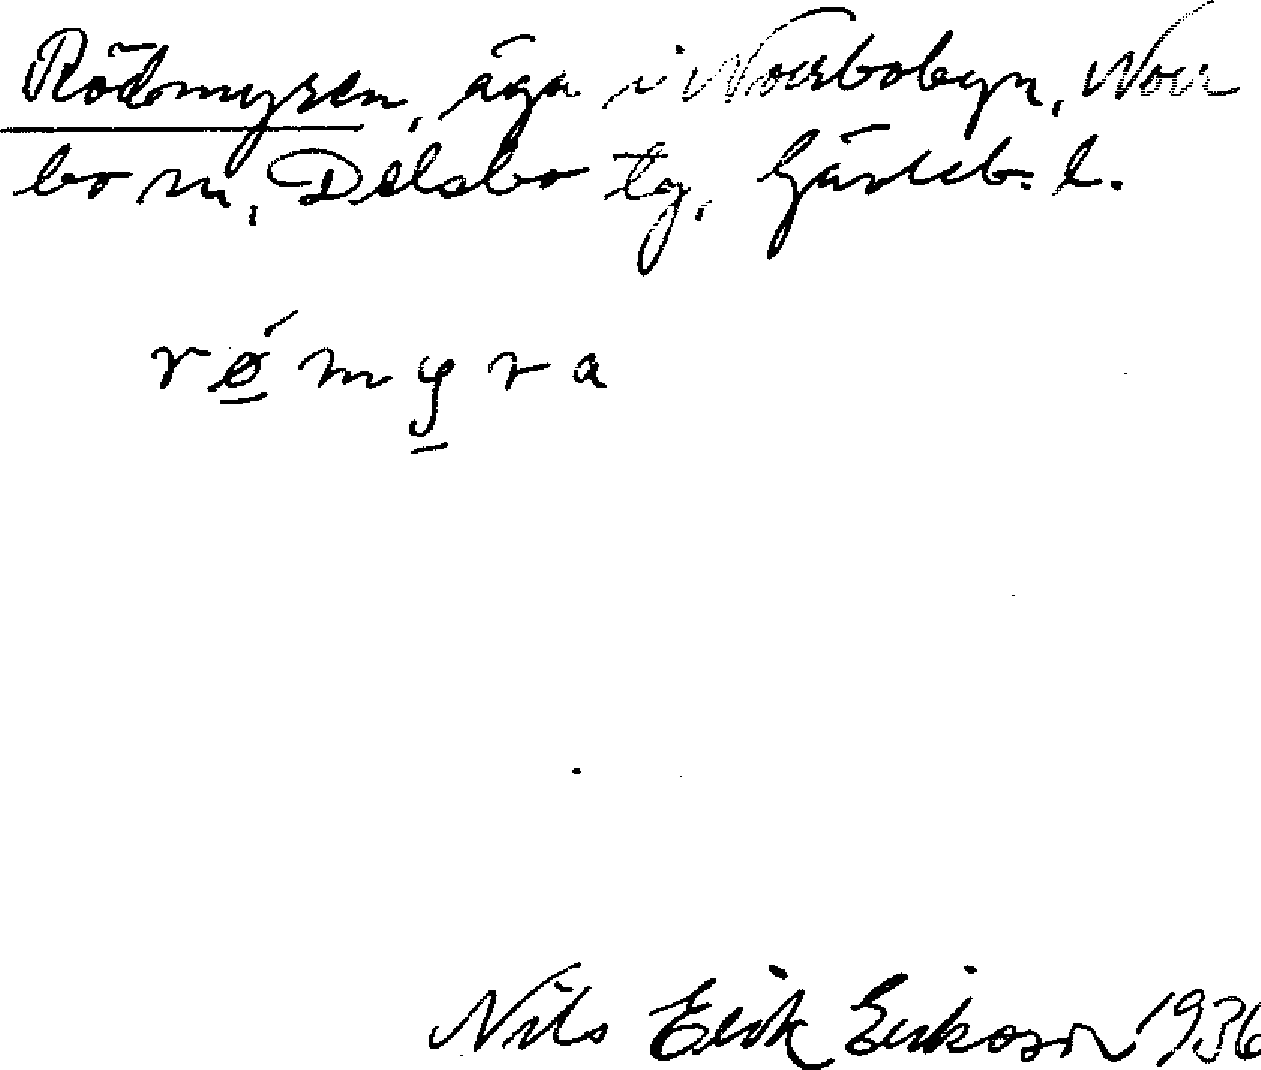 Rödmyren, äga i Norrbobyn, Norr
bo sn, Delsbo tg, Gävleb. l.
rǿmyra
Nils Erik Erikson 1936